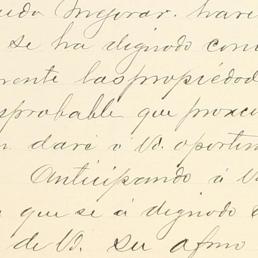 mejorar. hare
se ha dignodo com
rente las propiedad
probable que proxi
dare á V. oportun
Anticipando á V
que se á dignodo
de V. su afmo